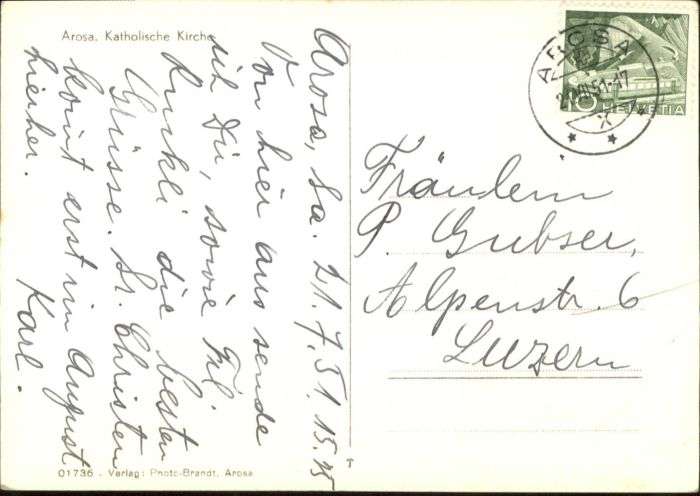 Arosa. Katholische Kirche
Arosa, Sa. 21.7.51. 15.15
Von hier aus sende
ich Dir, sowie Frl.
die besten
Grüsse. Sr. Christen
kommt erst im August
hierher.
Karl.
Fräulein
P. Gubser,
Alpenstr. 6
Luzern
AROSA
HELVETIA
10
01736 - Verlag: Photo-Brandt, Arosa